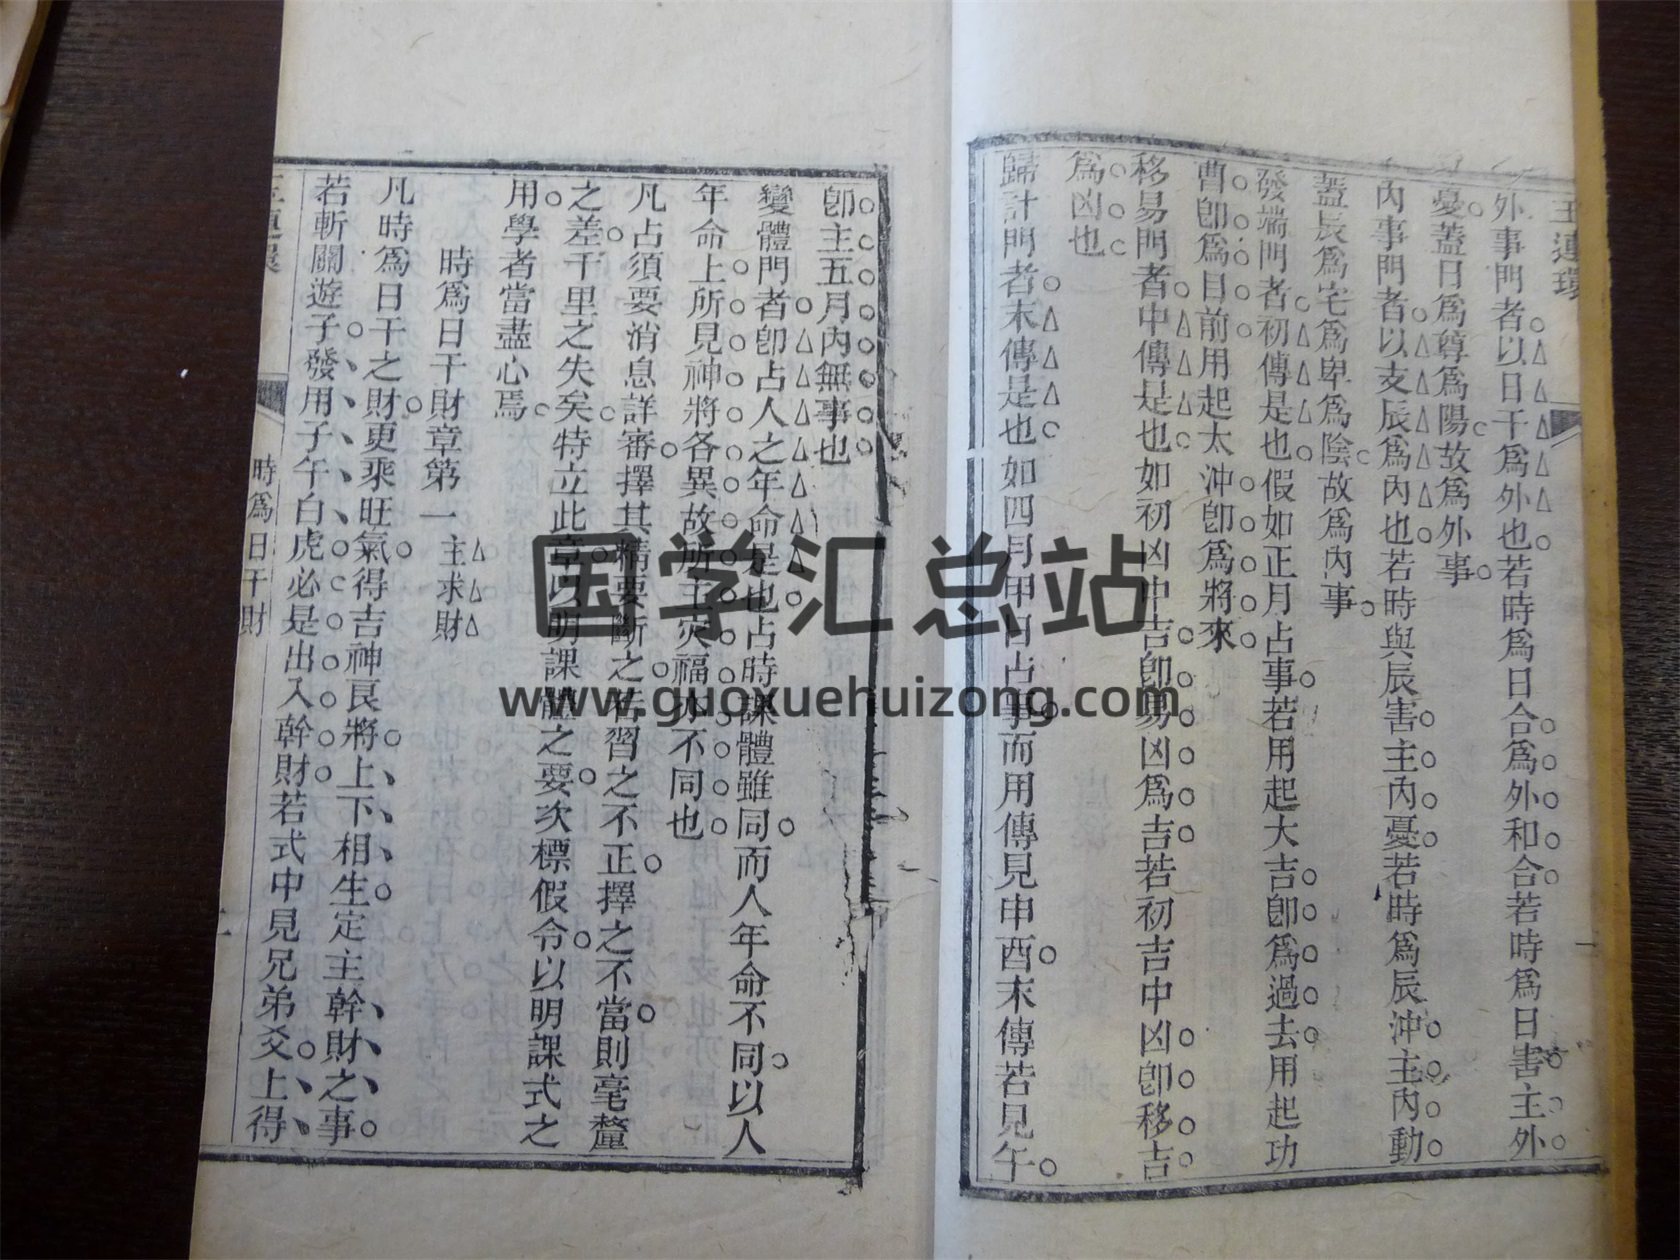 玉連環
外事門者以日干爲外也若時爲日合爲外和合若時爲日害主外
憂蓋日爲尊爲陽故爲外事
內事門者以支辰爲內也若時與辰害主內憂若時爲辰沖主內動
蓋辰爲宅爲卑爲陰故爲內事
發端門者初傳是也假如正月占事若用起大吉卽爲過去用起功
曹卽爲目前用起太沖卽爲將來
移易門者中傳是也如初凶中吉卽易凶爲吉若初吉中凶卽移吉
爲凶也
歸計門者末傳是也如四月甲日占事而用傳見申酉末傳若見午
卽主五月內無事也
變體門者卽占人之年命是也占時課體雖同而人年命不同以人
年命上所見神將各異故所主災福亦不同也
凡占須要消息詳審擇其精要斷之若習之不正擇之不當則毫釐
之差千里之失矣特立此章以明課體之要次標假令以明課式之
用學者當盡心焉
時爲日干財章第一 主求財
凡時爲日干之財更乘旺氣得吉神良將上下相生定主幹財之事
若斬關遊子發用子午白虎必是出入幹財若式中見兄弟爻上得
時爲日干財
国学汇总站
www.guoxuehuizong.com